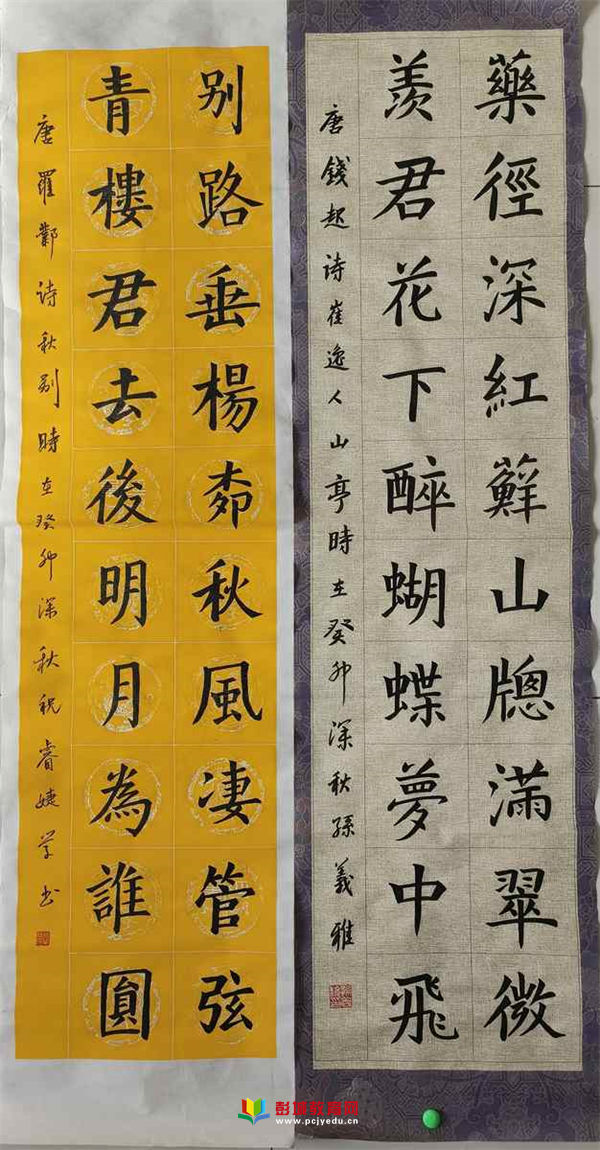 藥徑深紅蘚山牕滿翠微
羨君花下醉蝴蝶夢中飛
唐錢起诗崔逸人山亭時在癸卯深秋孫義雅
别路垂楊柳秋風凄管弦
青樓君去後明月為誰圓
唐羅鄴诗秋别時在癸卯深秋祝睿婕学书
彭城教育网
www.pcjyedu.cn